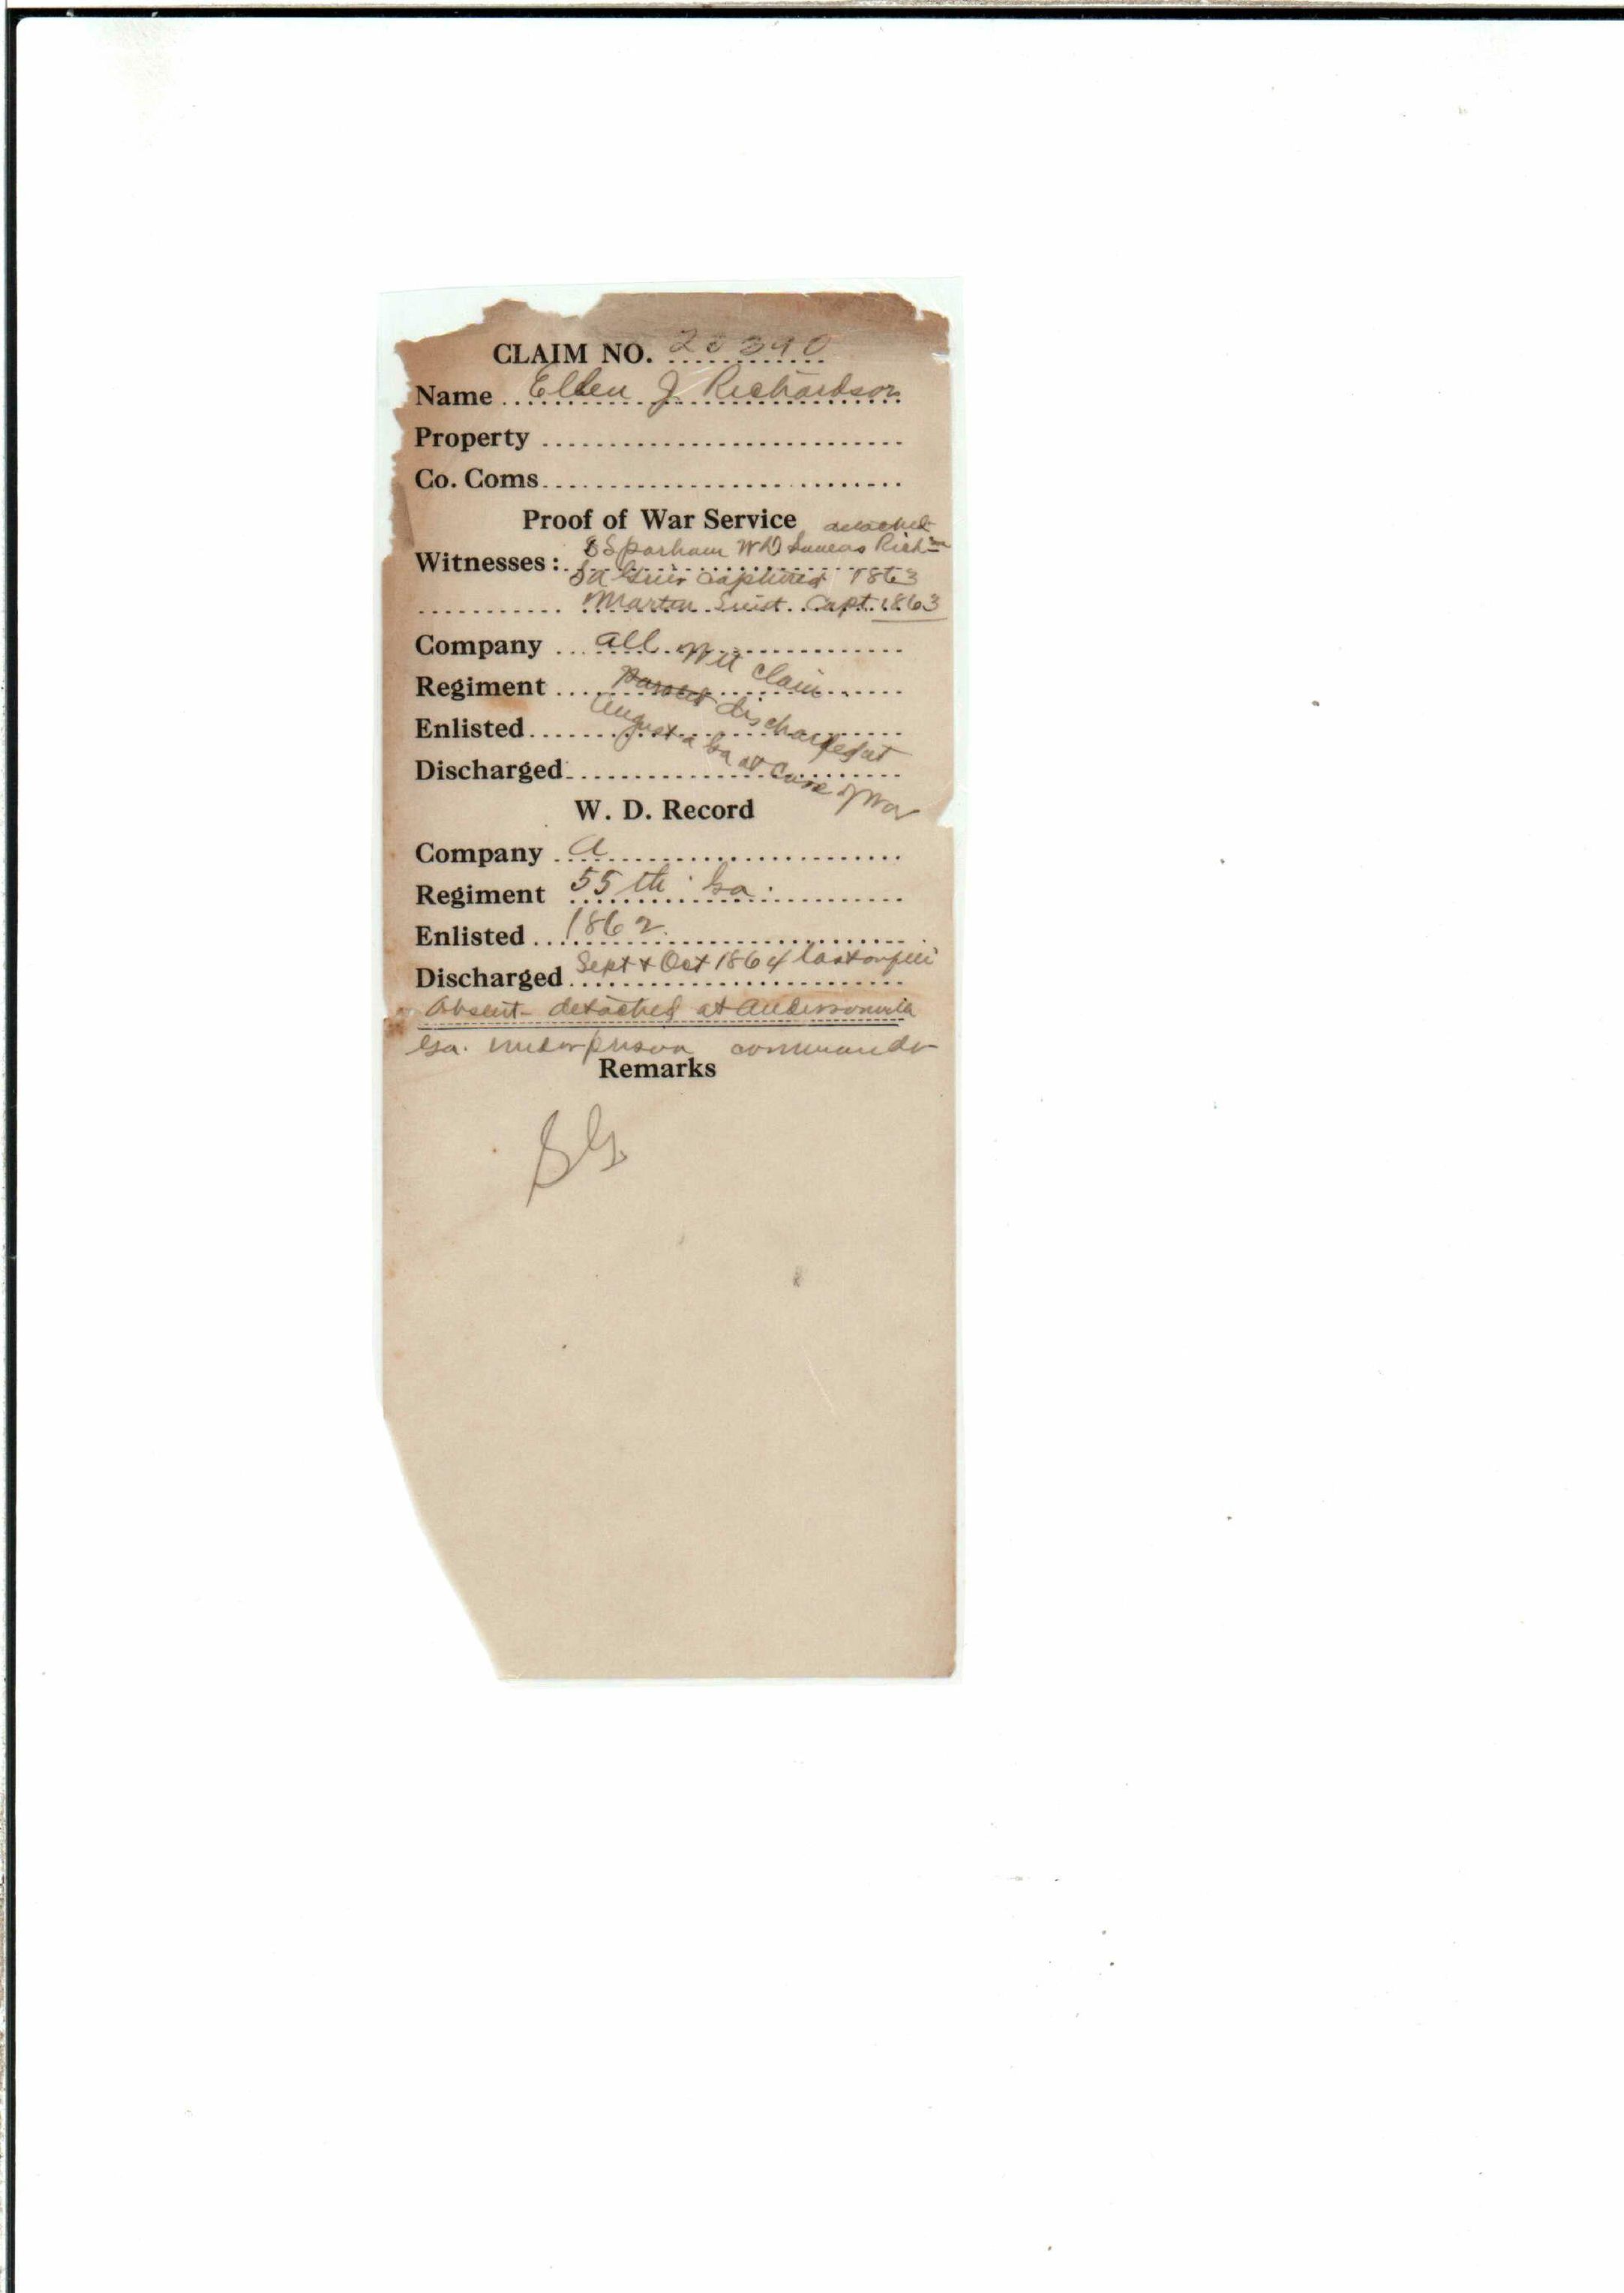 CLAIM NO. 20390
Name Ellen J Richardson
Property
Co. Coms.
Proof of War Service detached
Witnesses: S Sparham W D Richm
captured 1863
Martin Capt. 1863
Company all
Wit claim
Regiment discharged at
Enlisted Augusta Ga at
Discharged of War
W. D. Record
Company A
Regiment 55th Ga.
Enlisted 1862
Discharged Sept & Oct 1864 last on file
Absent detached at Andersonville
Ga. under prison commander
Remarks